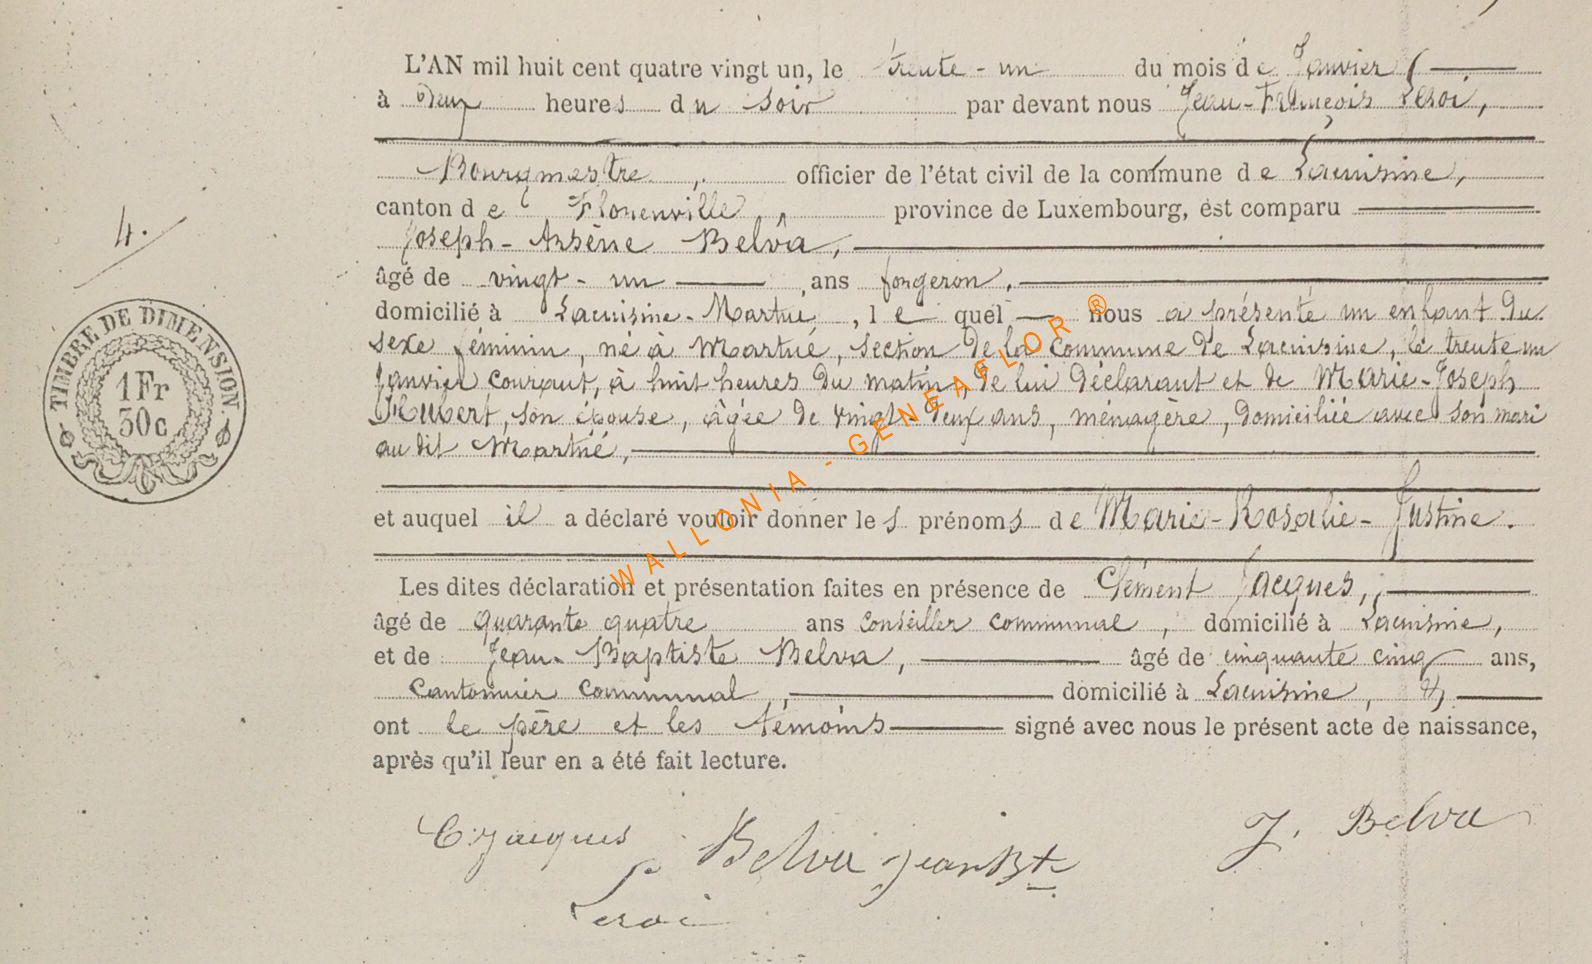 L'AN mil huit cent quatre vingt un, le trente-un du mois de Janvier
à deux heures du soir par devant nous Jean-François Leroi,
Bourgmestre, officier de l'état civil de la commune de Lacuisine,
canton de Florenville, province de Luxembourg, est comparu
4.
Joseph-Arsène Belva,
âgé de vingt-un ans forgeron,
domicilié à Lacuisine-Martué, le quel nous a présenté un enfant du
sexe féminin, né à Martué, section de la commune de Lacuisine, le trente un
Janvier courant, à huit heures du matin, de lui déclarant et de Marie-Joseph
Hubert, son épouse, âgée de vingt deux ans, ménagère, domiciliée avec son mari
au dit Martué,
TIMBRE DE DIMENSION.
1 Fr
30c
et auquel il a déclaré vouloir donner les prénoms de Marie-Rosalie-Justine.
Les dites déclaration et présentation faites en présence de Clément Jacques,
âgé de quarante quatre ans conseiller communal, domicilié à Lacuisine,
et de Jean-Baptiste Belva, âgé de cinquante cinq ans,
Cantonnier communal, domicilié à Lacuisine,
ont le père et les témoins signé avec nous le présent acte de naissance,
après qu'il leur en a été fait lecture.
C. Jacques Belva Jean Bte J. Belva
Leroi
WALLONIA - GENEAFLOR ®